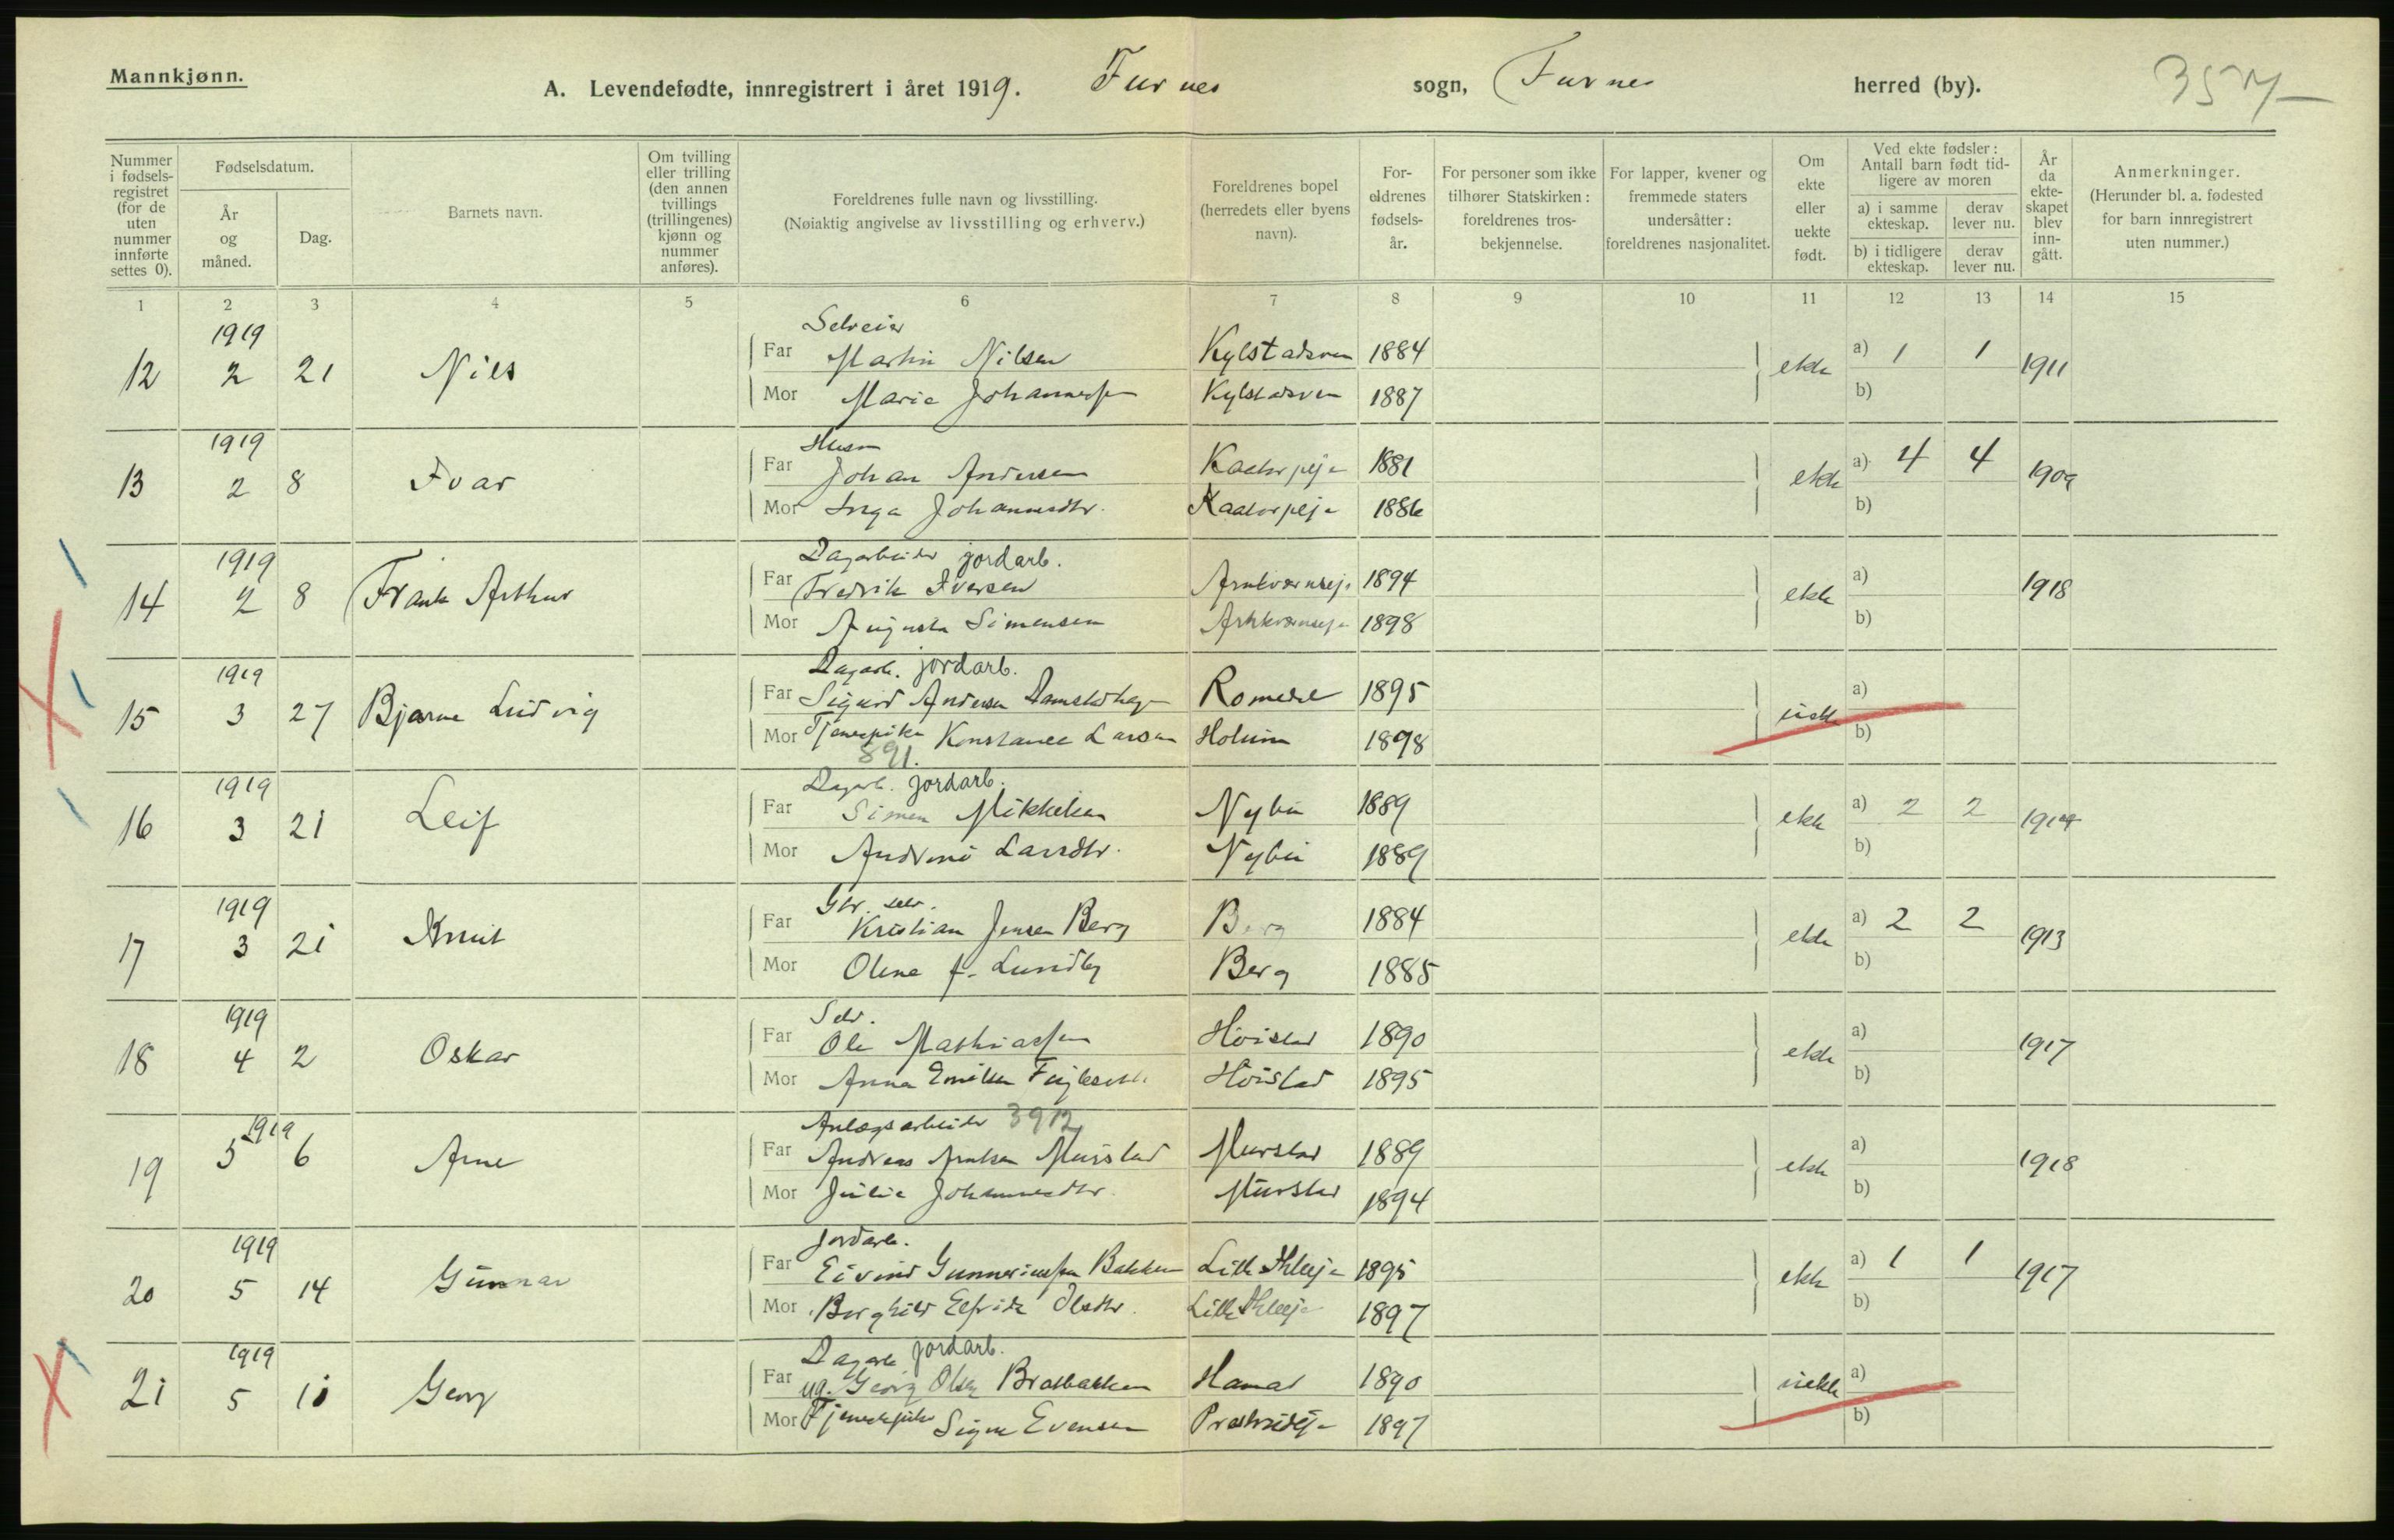 Mannkjønn.
A. Levendefødte, innregistrert i året 1919. Furnes sogn, Furnes herred (by).
Nummer i fødsels-registret (for de uten nummer innførte settes 0).
Fødselsdatum.
År og måned.
Dag.
Barnets navn.
Om tvilling eller trilling (den annen tvillings (trillingenes) kjønn og nummer anføres).
Foreldrenes fulle navn og livsstilling.
(Nøiaktig angivelse av livsstilling og erhverv.)
Foreldrenes bopel (herredets eller byens navn).
For-eldrenes fødsels-år.
For personer som ikke tilhører Statskirken: foreldrenes tros-bekjennelse.
For lapper, kvener og fremmede staters undersåtter: foreldrenes nasjonalitet.
Om ekte eller uekte født.
Ved ekte fødsler: Antall barn født tid-ligere av moren
a) i samme ekteskap.
derav lever nu.
b) i tidligere ekteskap.
derav lever nu.
År da ekte-skapet blev inn-gått.
Anmerkninger.
(Herunder bl. a. fødested for barn innregistrert uten nummer.)
1 2 3 4 5 6 7 8 9 10 11 12 13 14 15
1919 Selveier
12 2 21 Nils Far Martin Nilsen Kylstadsven 1884 ekte a) 1 1 1911
Mor Marie Johannessen Kylstadsven 1887 b)
1919 Husm
13 2 8 Ivar Far Johan Andersen 1881 ekte a) 4 4 1909
Mor Inga Johannesdtr. 1886 b)
1919 Dagarbeider jordarb.
14 2 8 Frank Arthur Far Fredrik Iversen 1894 ekte a) 1918
Mor Augusta Simensen 1898 b)
1919 Dagarb. jordarb.
15 3 27 Bjarne Ludvig Far Sigurd Andersen Romedal 1895 uekte a)
Mor Tjenestpike Konstance Larsen 1898 b)
891.
1919 Dagarb. jordarb.
16 3 21 Leif Far Simen Mikkelsen Nybu 1889 ekte a) 2 2
Mor Larsdtr. Nybu 1889 b)
1919 Gbr. selv.
17 3 21 Knut Far Kristian Jensen Berg Berg 1884 ekte a) 2 2 1913
Mor Oline f. Lundby Berg 1885 b)
1919 Selv.
18 4 2 Oskar Far Ole Mathiassen Høistad 1890 ekte a) 1917
Mor Anna Emilie Høistad 1895 b)
1919 Anlægsarbeider 3912
19 5 6 Arne Far Andreas Murstad Murstad 1889 ekte a) 1918
Mor Julie Johannesdtr. Murstad 1894 b)
1919 Jordarb.
20 5 14 Gunnar Far Eivind Gunneriussen Bakken 1895 ekte a) 1 1 1917
Mor Borghild Elfrida Olsdtr. 1897 b)
1919 Dagarb jordarb.
21 5 10 Georg Far ug. Georg Olsen Bratbakken Hamar 1890 uekte a)
Mor Tjenestepike Signe Evensen 1897 b)